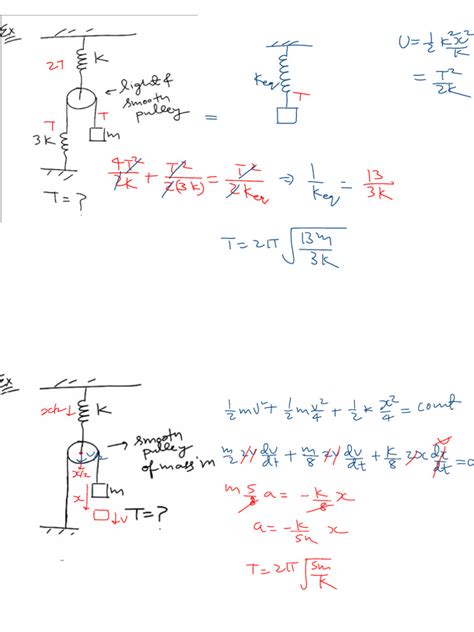 Ex
K
2T
light &
smooth
pulley
T
T
3K
m
T = ?
=
Keq
T
U = 1/2 k²x²/k
= T²/2k
4T²/2k + T²/2(3k) = T²/2keq ⇒ 1/keq = 13/3k
T = 2π √(13m/3k)
Ex
x/2
K
smooth
pulley
of mass 'm'
v/2
x/2
m
x
v
T = ?
1/2 mv² + 1/2 m v²/4 + 1/2 k x²/4 = const
m/2 2v dv/dt + m/8 2v dv/dt + k/8 2x dx/dt = 0
m 5/8 a = -k/8 x
a = -k/5m x
T = 2π √(5m/k)